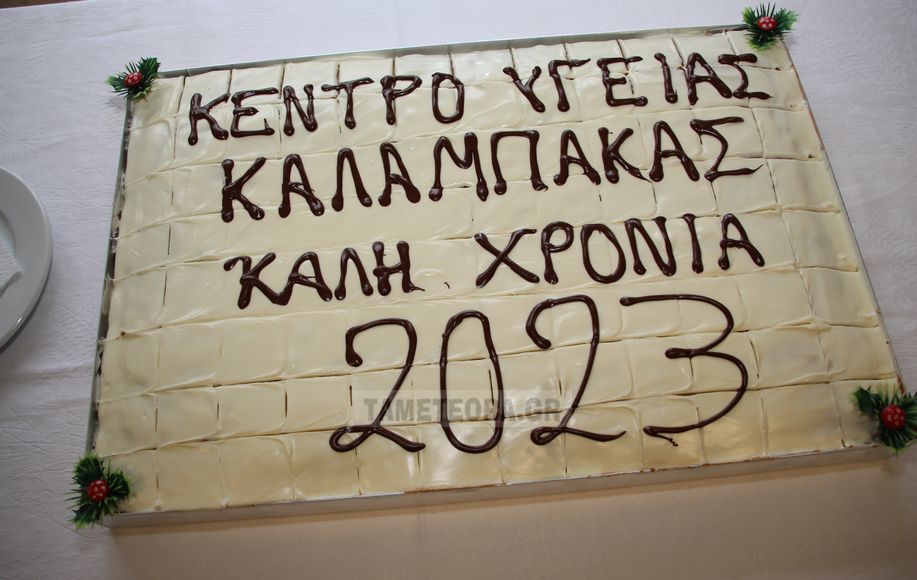 ΚΕΝΤΡΟ ΥΓΕΙΑΣ
ΚΑΛΑΜΠΑΚΑΣ
ΚΑΛΗ ΧΡΟΝΙΑ
2023
TAMETEORA.GR